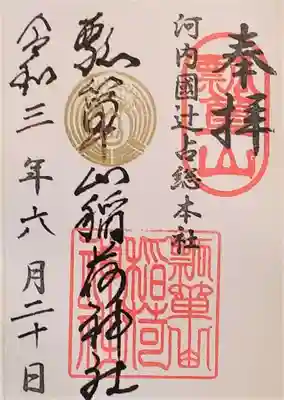 奉拝
河内國辻占総本社
瓢箪山
瓢箪山稲荷神社
瓢箪山稲荷神社
令和三年六月二十日